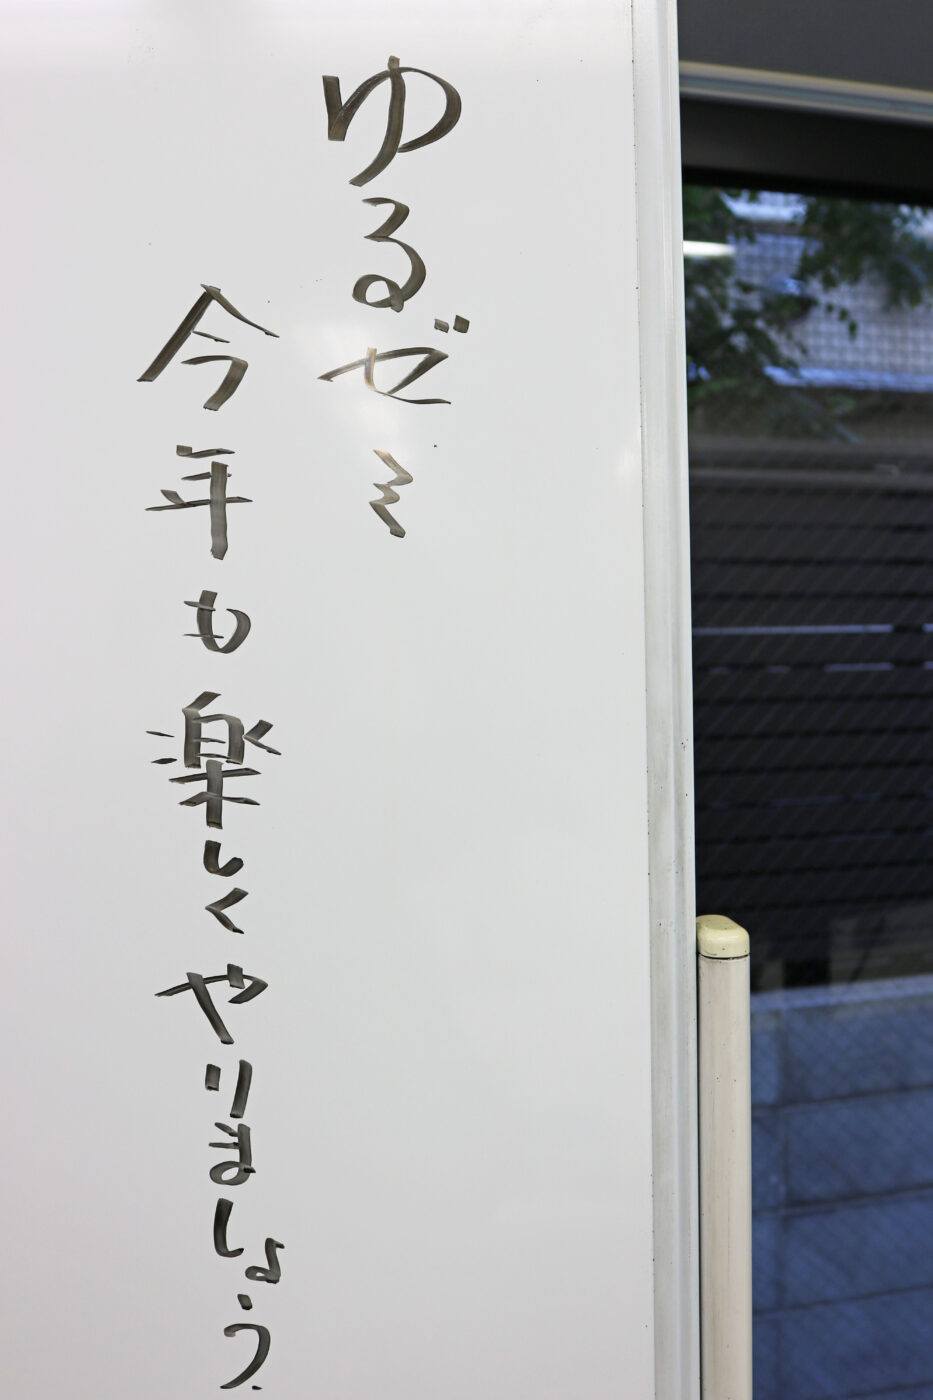 ゆるゼミ
今年も楽しくやりましょう.